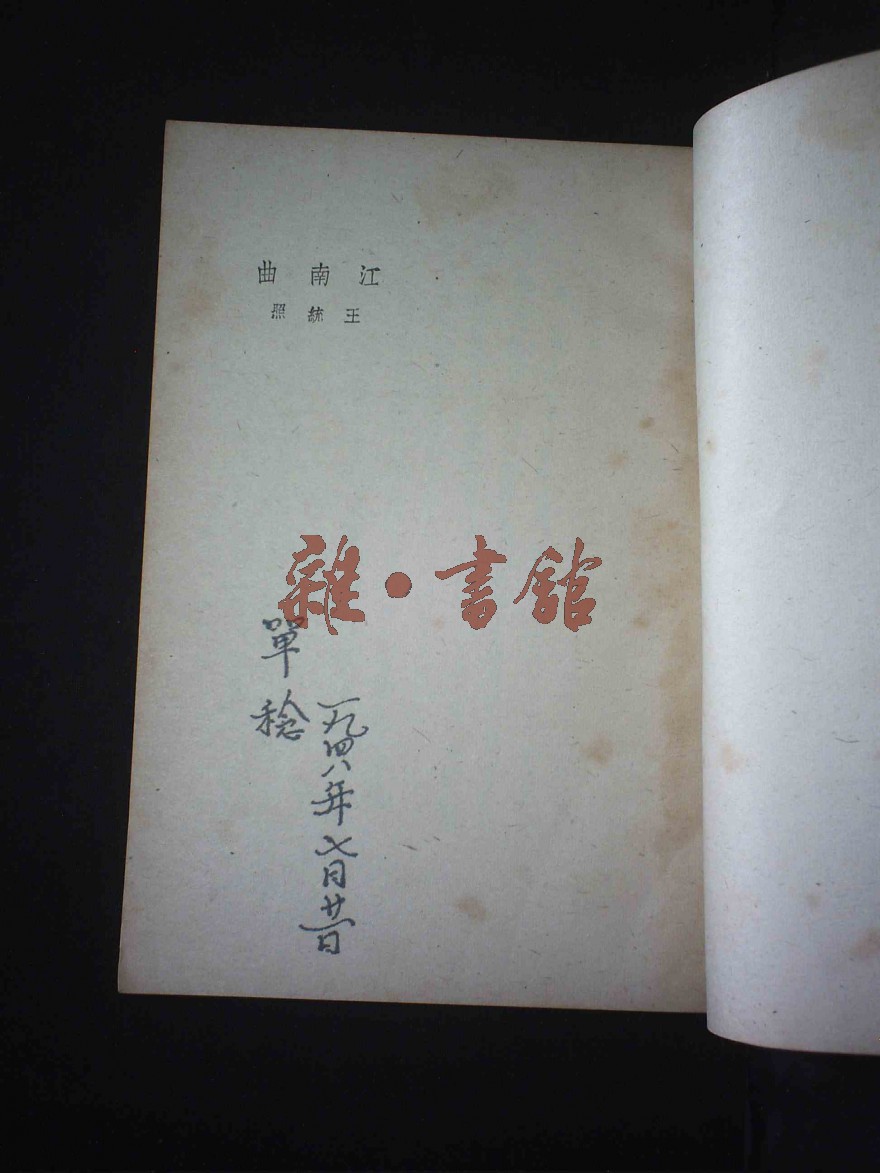 江南曲
王統照
雜·書館
一九四八年七月廿一日
單稔